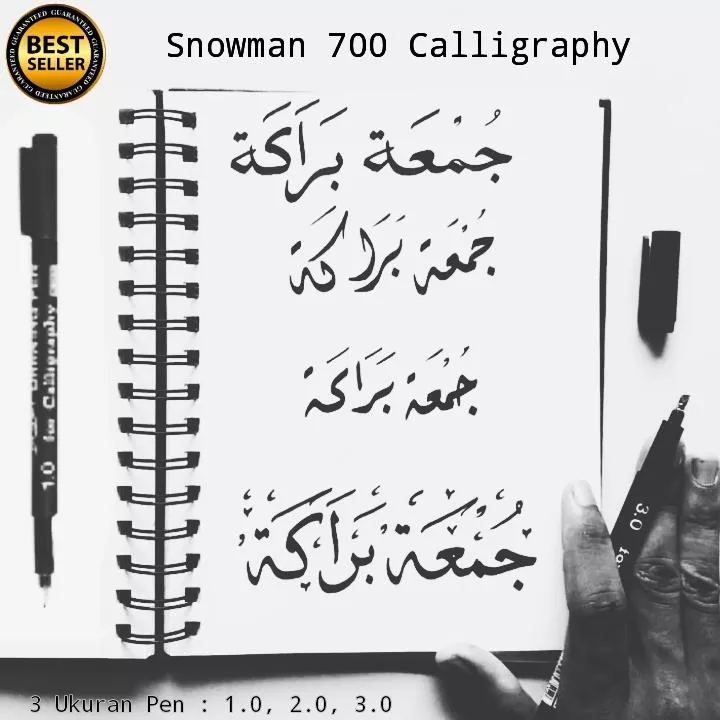 Snowman 700 Calligraphy
GUARANTEED GUARANTEED GUARANTEED
BEST
SELLER
GUARANTEED GUARANTEED GUARANTEED
جُمْعَة بَرَاكَة
جُمْعَة بَرَاكَة
جُمْعَة بَرَاكَة
جُمْعَة بَرَاكَة
DRAWING PEN
1.0 for Calligraphy
3.0 for
3 Ukuran Pen : 1.0, 2.0, 3.0